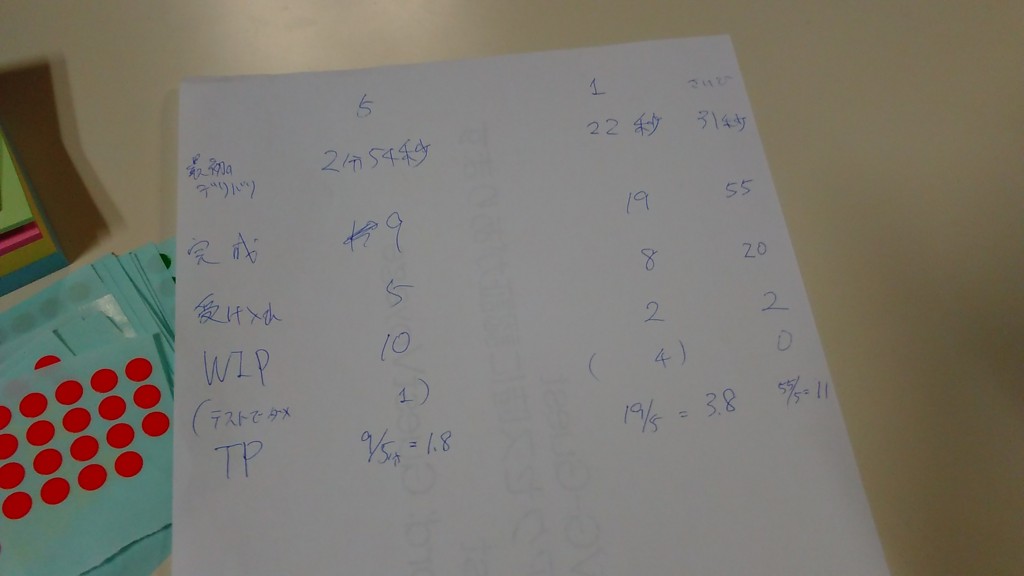 5 1
最初の 2分54秒 22秒 31秒
デリバリ
完成 9 19 55
受け入れ 5 8 20
WIP 10 2 2
(テストでダメ 1) (4) 0
TP 9/5分=1.8 19/5=3.8 55/5=11